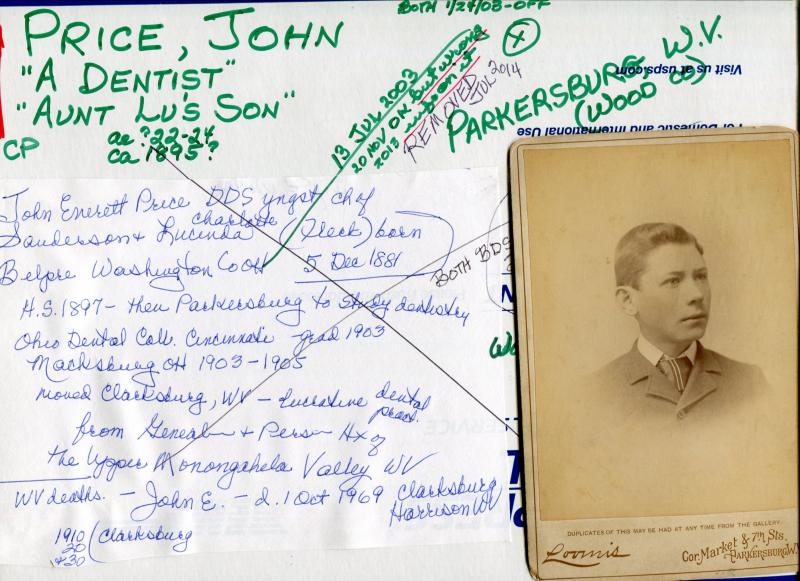 BOTH 1/27/03-OFF
PRICE, JOHN
"A DENTIST"
"AUNT LU'S SON"
CP
ae ? 22-24
ca 1895?
13 JUL 2003
20 NOV OK but wrong
2013 surgeon at
REMOVED JUL 2014
PARKERSBURG W.V.
(WOOD CO)
Visit us at usps.com
For Domestic and International Use
John Everett Price DDS yngst ch of
Sanderson & Lucinda Charlotte (Fleck) born
Belpre Washington Co OH 5 Dec 1881
BOTH BDS
H.S. 1897 - then Parkersburg to study dentistry
Ohio Dental Coll. Cincinnati - grad 1903
Macksburg OH 1903-1905
moved Clarksburg, WV - lucrative dental pract.
from Geneal & Perso Hx of
the Upper Monongahela Valley WV
WV deaths. - John E. - d. 1 Oct 1969 Clarksburg
Harrison WV
1910
20
+30
Clarksburg
DUPLICATES OF THIS MAY BE HAD AT ANY TIME FROM THE GALLERY.
Loomis
Cor. Market & 7th Sts.
PARKERSBURG W.